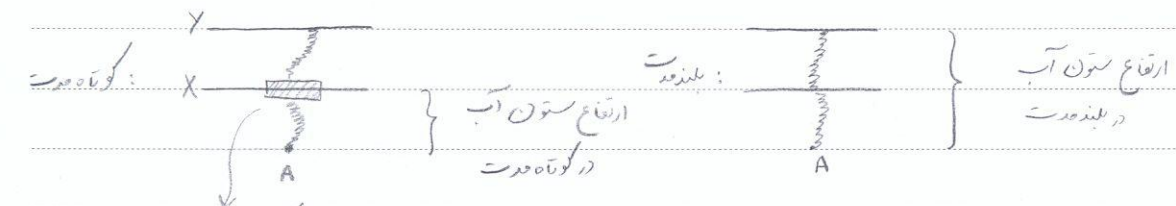 Y
کوتاه مدت :
X
A
ارتفاع ستون آب
در کوتاه مدت
بلندمدت :
A
ارتفاع ستون آب
در بلندمدت